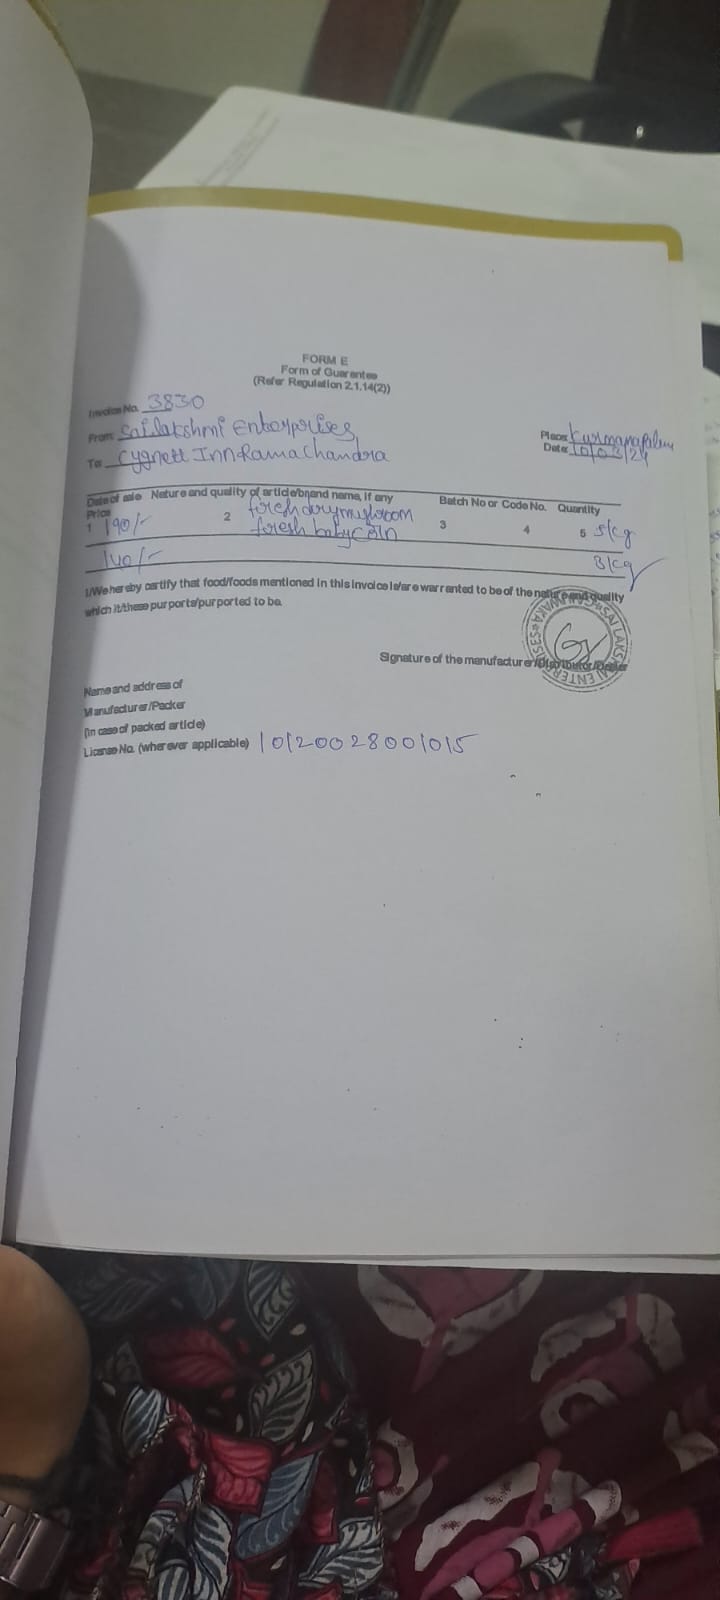 FORM E
Form of Guarantee
(Refer Regulation 2.1.14(2))
Invoice No. 3830
From: Sai lakshmi Enterprises
Place: Kurmanapalem
To: Cygnett Inn Ramachandra
Date: 10/03/24
Date of sale Nature and quality of article/brand name, if any Batch No or Code No. Quantity
Price
1 190/- 2 fresh dry mushroom 3 4 5 5kg
fresh baby corn
140/- 3kg
I/We hereby certify that food/foods mentioned in this invoice is/are warranted to be of the nature and quality
which it/these purports/purported to be.
SAI LAKSHMI ENTERPRISES
Signature of the manufacturer/Distributor/Dealer
Name and address of
Manufacturer/Packer
(in case of packed article)
License No. (wherever applicable) 10120028001015